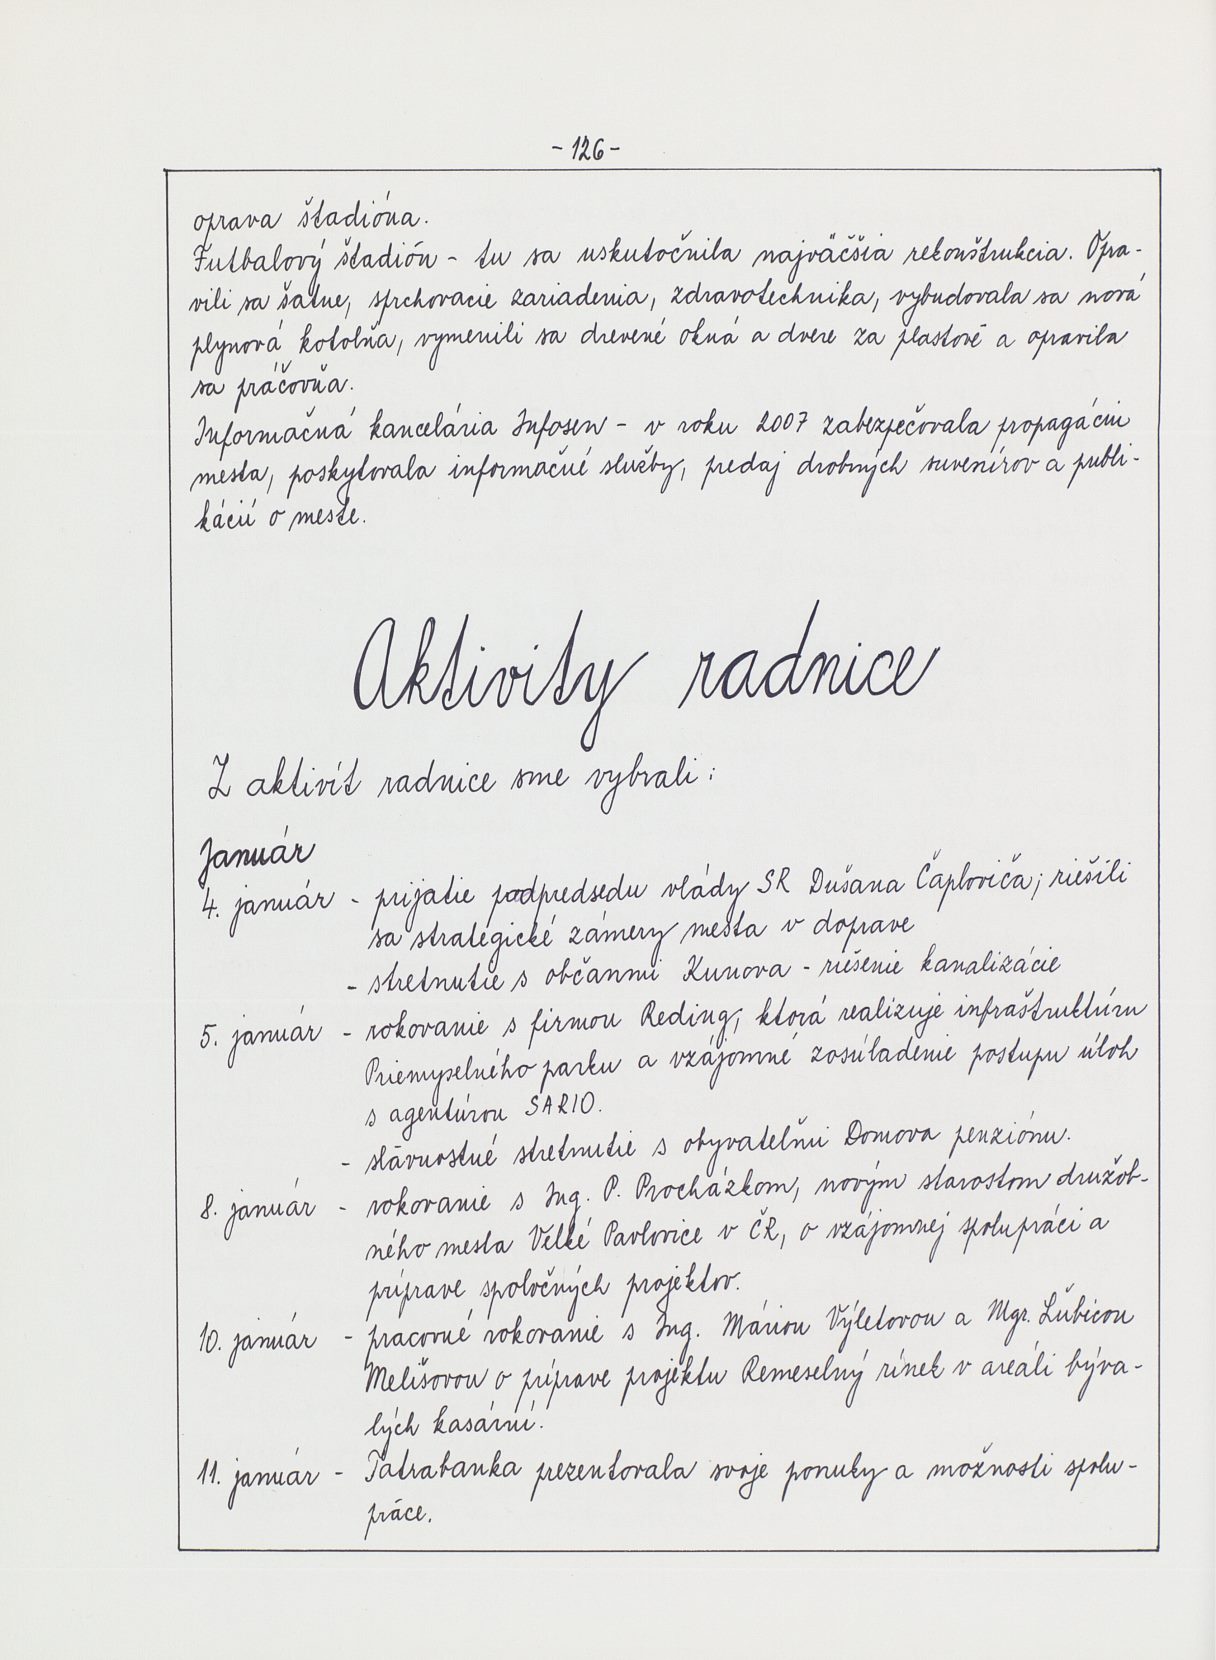 - 126 -
oprava štadióna.
Futbalový štadión - tu sa uskutočnila najväčšia rekonštrukcia. Opra-
vili sa šatne, sprchovacie zariadenia, zdravotechnika, vybudovala sa nová
plynová kotolňa, vymenili sa drevené okná a dvere za plastové a opravila
sa práčovňa.
Informačná kancelária Infosen - v roku 2007 zabezpečovala propagáciu
mesta, poskytovala informačné služby, predaj drobných suvenírov a publi-
kácií o meste.
Aktivity radnice
Z aktivít radnice sme vybrali:
Január
4. január - prijatie podpredsedu vlády SR Dušana Čaploviča; riešili
sa strategické zámery mesta v doprave
- stretnutie s občanmi Kunova - riešenie kanalizácie
5. január - rokovanie s firmou Reding, ktorá realizuje infraštruktúru
Priemyselného parku a vzájomné zosúladenie postupu úloh
s agentúrou SARIO.
- slávnostné stretnutie s obyvateľmi Domova penziónu.
8. január - rokovanie s Ing. P. Procházkom, novým starostom družob-
ného mesta Velké Pavlovice v ČR, o vzájomnej spolupráci a
príprave spoločných projektov.
10. január - pracovné rokovanie s Ing. Máriou Výletovou a Mgr. Ľubicou
Melišovou o príprave projektu Remeselný rínek v areáli býva-
lých kasární.
11. január - Tatrabanka prezentovala svoje ponuky a možnosti spolu-
práce.